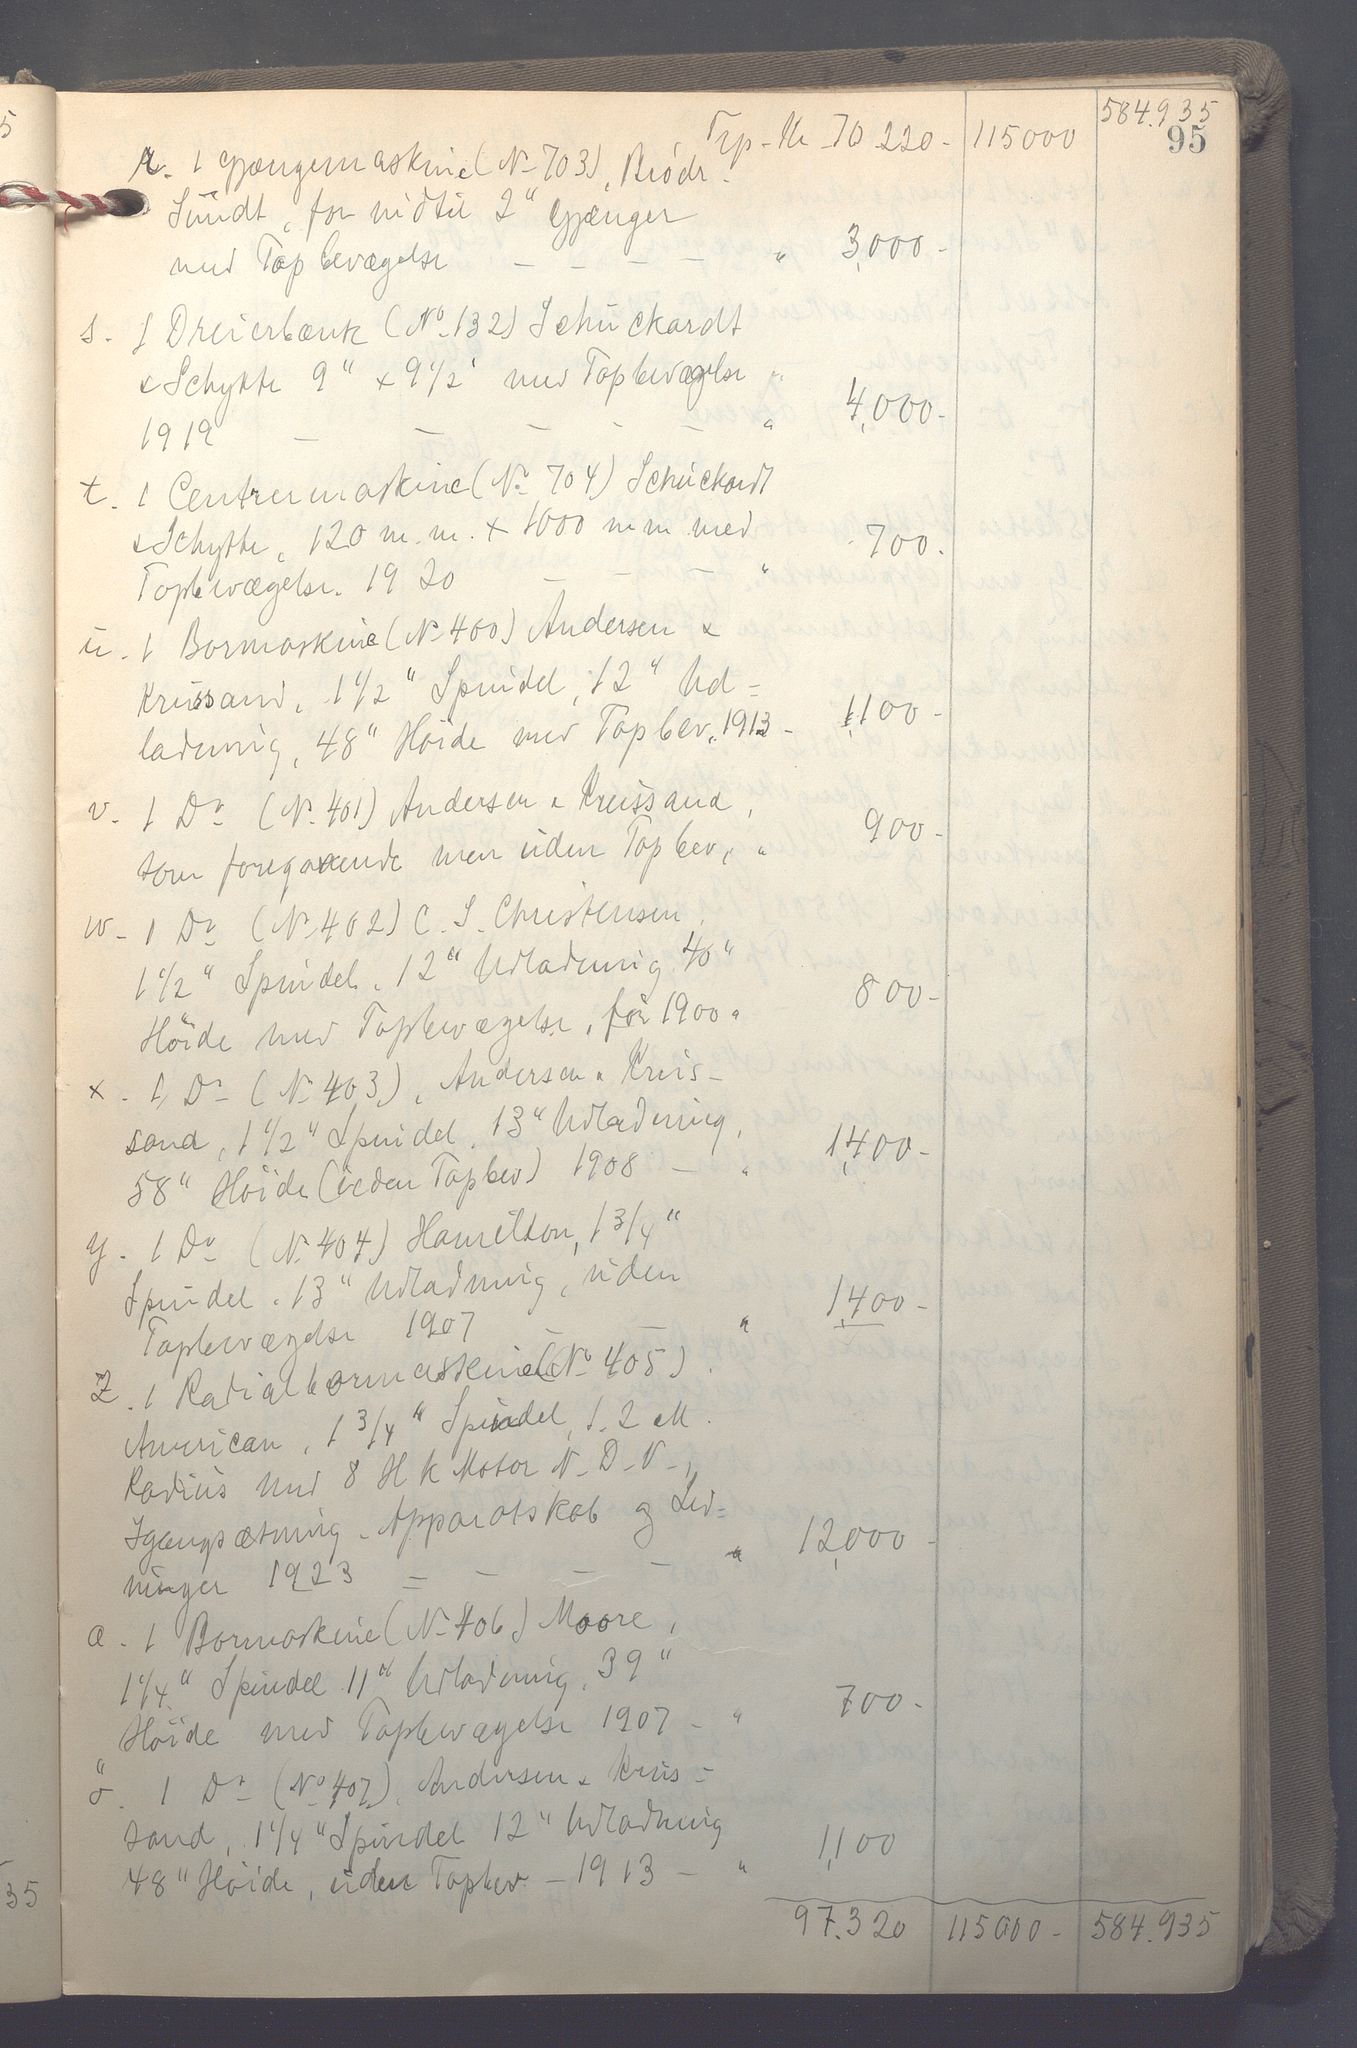 584.935
95
Trp. Kr 70 220 - 115000
r. 1 Gjængemaskine (No 703), Brödr.
Sundt, for indtil 2" Gjænger
med Topbevægelse - - - - " 3,000 -
s. 1 Dreierbænk (No 132) Schuckardt
& Schytte 9" x 9 1/2' med Topbevægelse "
1919 - - - - - " 4,000 -
t. 1 Centrermaskine (No 704) Schuckardt
& Schytte, 120 m.m. x 1000 m m med
Topbevægelse. 1920 - - - " 700.
u. 1 Bormaskine (No 400) Andersen &
Kreissand, 1 1/2" Spindel, 12" Ud=
ladning, 48" Höide med Topbev. 1913 - 1,100 -
v. 1 Do (No 401) Andersen & Kreissand,
som foregaaende men uden Topbev, " 900 -
w. 1 Do (No 402) C. S. Christensen,
1 1/2" Spindel, 12" Udladning 40"
Höide med Topbevægelse, før 1900 " 800 -
x. 1 Do (No 403), Andersen & Kreis-
sand, 1 1/2" Spindel, 13" Udladning,
58" Höide (uden Topbev) 1908 - " 1,400 -
y. 1 Do (No 404) Hamilton, 1 3/4"
Spindel, 13" Udladning, uden
Topbevægelse 1907 - - " 1,400 -
z. 1 Radialbormaskine (No 405)
American, 1 3/4" Spindel, 1.2 M.
Radius med 8 H K Motor N-D-V-,
Igangsætning, Apparatskab og Led=
ninger 1923 = - - - " 12,000 -
a. 1 Bormaskine (No 406) Moore,
1 1/4" Spindel 11" Udladning, 39"
Höide med Topbevægelse 1907 - " 700 -
ö. 1 Do (No 407), Andersen & Kreis=
sand, 1 1/4" Spindel 12" Udladning
48" Höide, uden Topbev - 1913 - " 1,100
97.320 115000 - 584.935